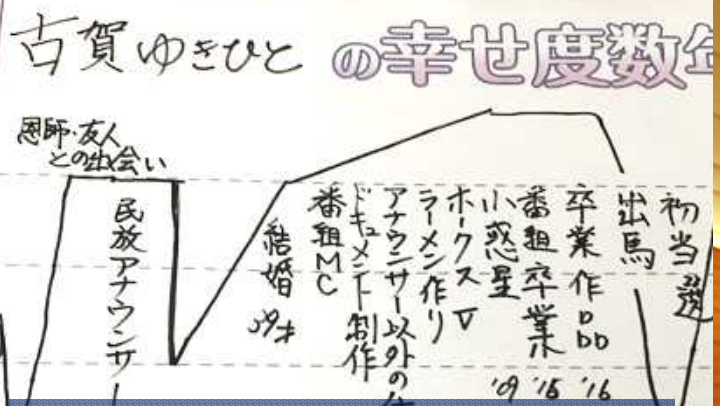 古賀ゆきひと の幸せ度数年
恩師・友人
との出会い
民放アナウンサ
結婚 39才
番組MC
ドキュメント制作
アナウンサー以外の仕
ラーメン作り
ホークスV
小惑星 '09
番組卒業 '15
卒業作品 '16
出馬
初当選